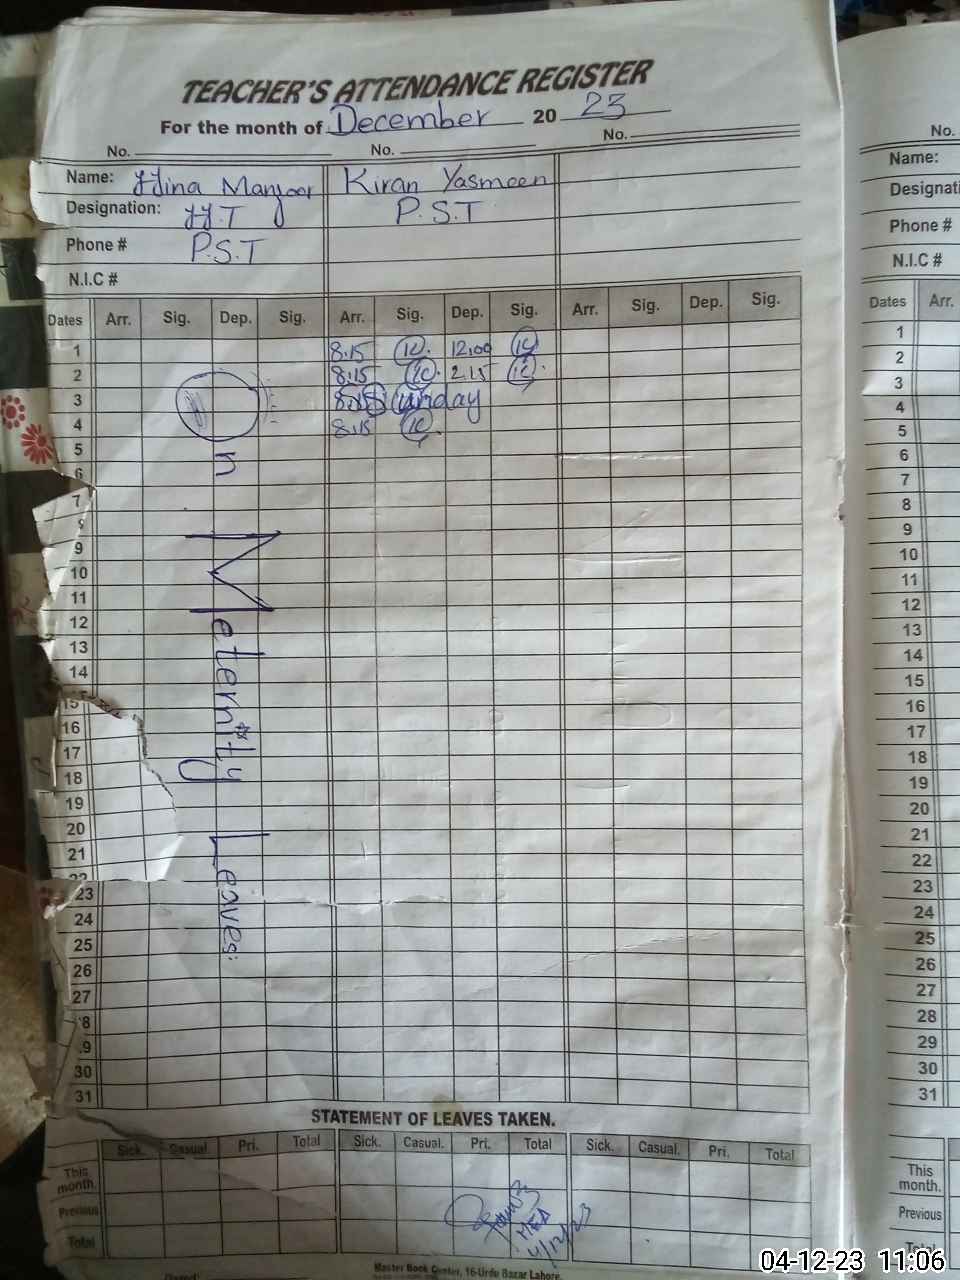 TEACHER'S ATTENDANCE REGISTER
For the month of December 20 23
No. No. No.
Name: Hina Manzoor Kiran Yasmeen
Designation: H.T P.S.T
Phone # P.S.T
N.I.C #
Dates Arr. Sig. Dep. Sig. Arr. Sig. Dep. Sig. Arr. Sig. Dep. Sig.
1 8.15 12.00
2 8.15 2.15
3 8.15 Sunday
4 8.15
5
6
7
9
10
11
12
13
14
15
16
17
18
19
20
21
22
23
24
25
26
27
8
9
30
31
On Meternity Leaves:
STATEMENT OF LEAVES TAKEN.
Sick. Casual. Pri. Total Sick. Casual. Pri. Total Sick. Casual. Pri. Total
This month.
Previous
Total
4/12/23
Master Book Center, 16-Urdu Bazar Lahore.
No.
Name:
Designati
Phone #
N.I.C #
Dates Arr.
1
2
3
4
5
6
7
8
9
10
11
12
13
14
15
16
17
18
19
20
21
22
23
24
25
26
27
28
29
30
31
This month.
Previous
04-12-23 11:06